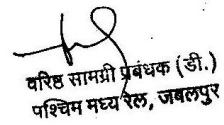 वरिष्ठ सामग्री प्रबंधक (डी.)
पश्चिम मध्य रेल, जबलपुर